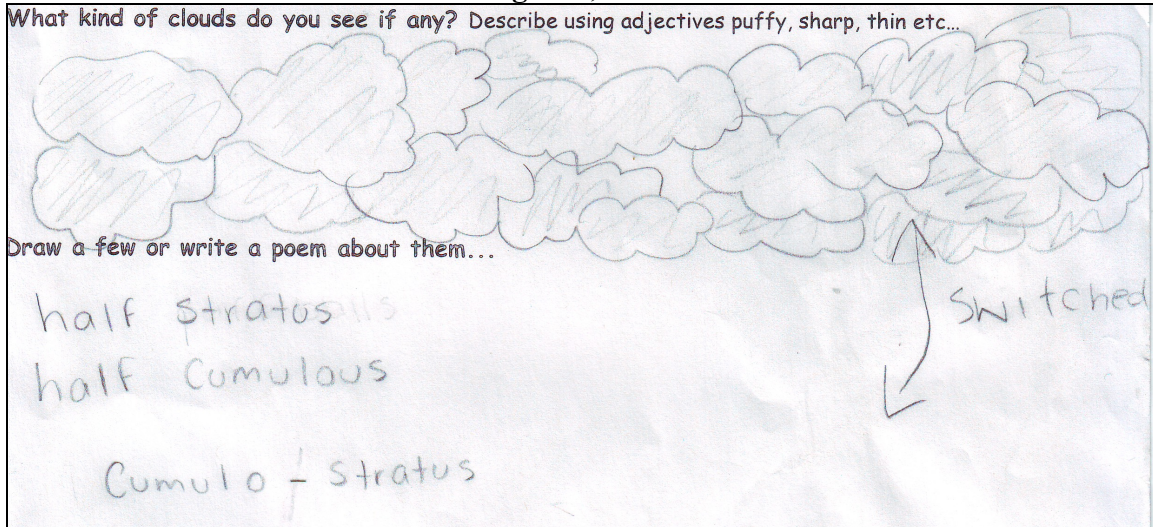 What kind of clouds do you see if any? Describe using adjectives puffy, sharp, thin etc...
Draw a few or write a poem about them...
half stratus
Switched
half Cumulous
Cumulo - Stratus